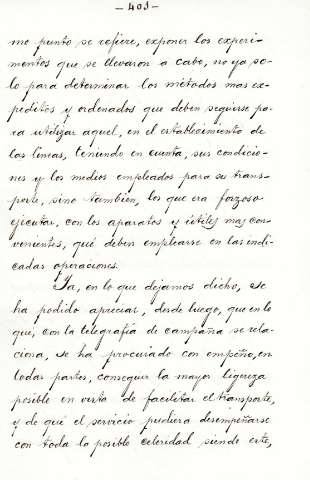 - 403 -
mo punto se refiere, exponer los experi-
mentos que se llevaron a cabo, no ya so-
lo para determinar los métodos mas ex-
peditos y ordenados que deben seguirse pa-
ra utilizar aquel, en el establecimiento de
las líneas, teniendo en cuenta, sus condicio-
nes y los medios empleados para su trans-
porte, sino tambien, los que era forzoso
ejecutar, con los aparatos y útiles mas con-
venientes, qué deben emplearse en las indi-
cadas operaciones.
Ya, en lo que dejamos dicho, se
ha podido apreciar, desde luego, que en lo
que, con la telegrafía de campaña se rela-
ciona, se ha procurado con empeño, en
todas partes, conseguir la mayor ligereza
posible en vista de facilitar el transporte,
y de qué el servicio pudiera desempeñarse
con toda la posible celeridad siendo este,